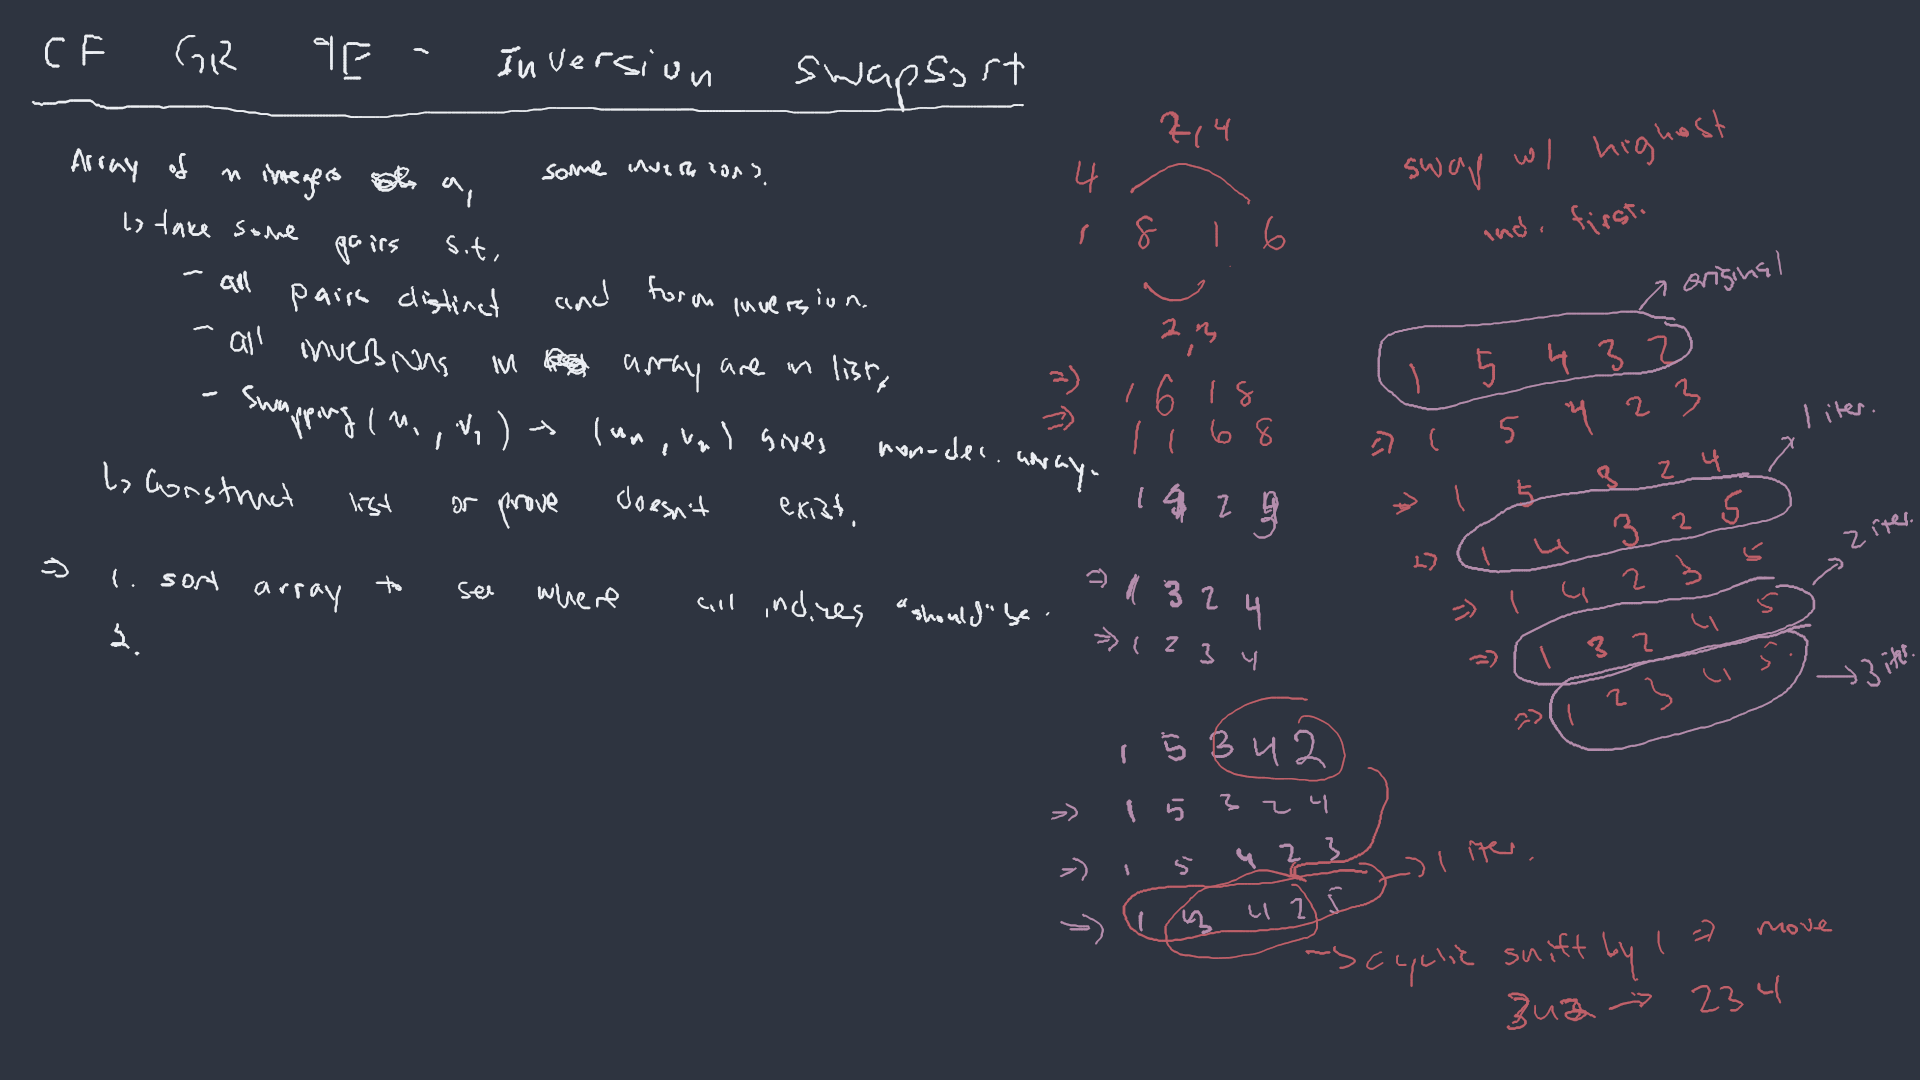 CF GR 9E - Inversion SwapSort
Array of n integers a, some inversions.
↳ take some pairs s.t.
- all pairs distinct and form inversion.
- all inversions in array are in list,
- Swapping (u₁, v₁) → (uₙ, vₙ) gives non-dec. array.
↳ Construct list or prove doesn't exist.
⇒ 1. sort array to see where all indices "should" be.
2.
2,4
4
1 8 1 6
2,3
⇒ 1 6 1 8
⇒ 1 1 6 8
⇒ 1 3 2 4
⇒ 1 2 3 4
1 5 3 4 2
⇒ 1 5 3 2 4
⇒ 1 5 4 2 3
⇒ 1 3 4 2 5
→ 1 iter.
→ cyclic shift by 1 ⇒ move
342 → 234
swap w/ highest
ind. first.
→ original
1 5 4 3 2
⇒ 1 5 4 2 3
→ 1 iter.
⇒ 1 5 3 2 4
⇒ 1 4 3 2 5
→ 2 iter.
⇒ 1 4 2 3 5
⇒ 1 3 2 4 5
→ 3 iter.
⇒ 1 2 3 4 5